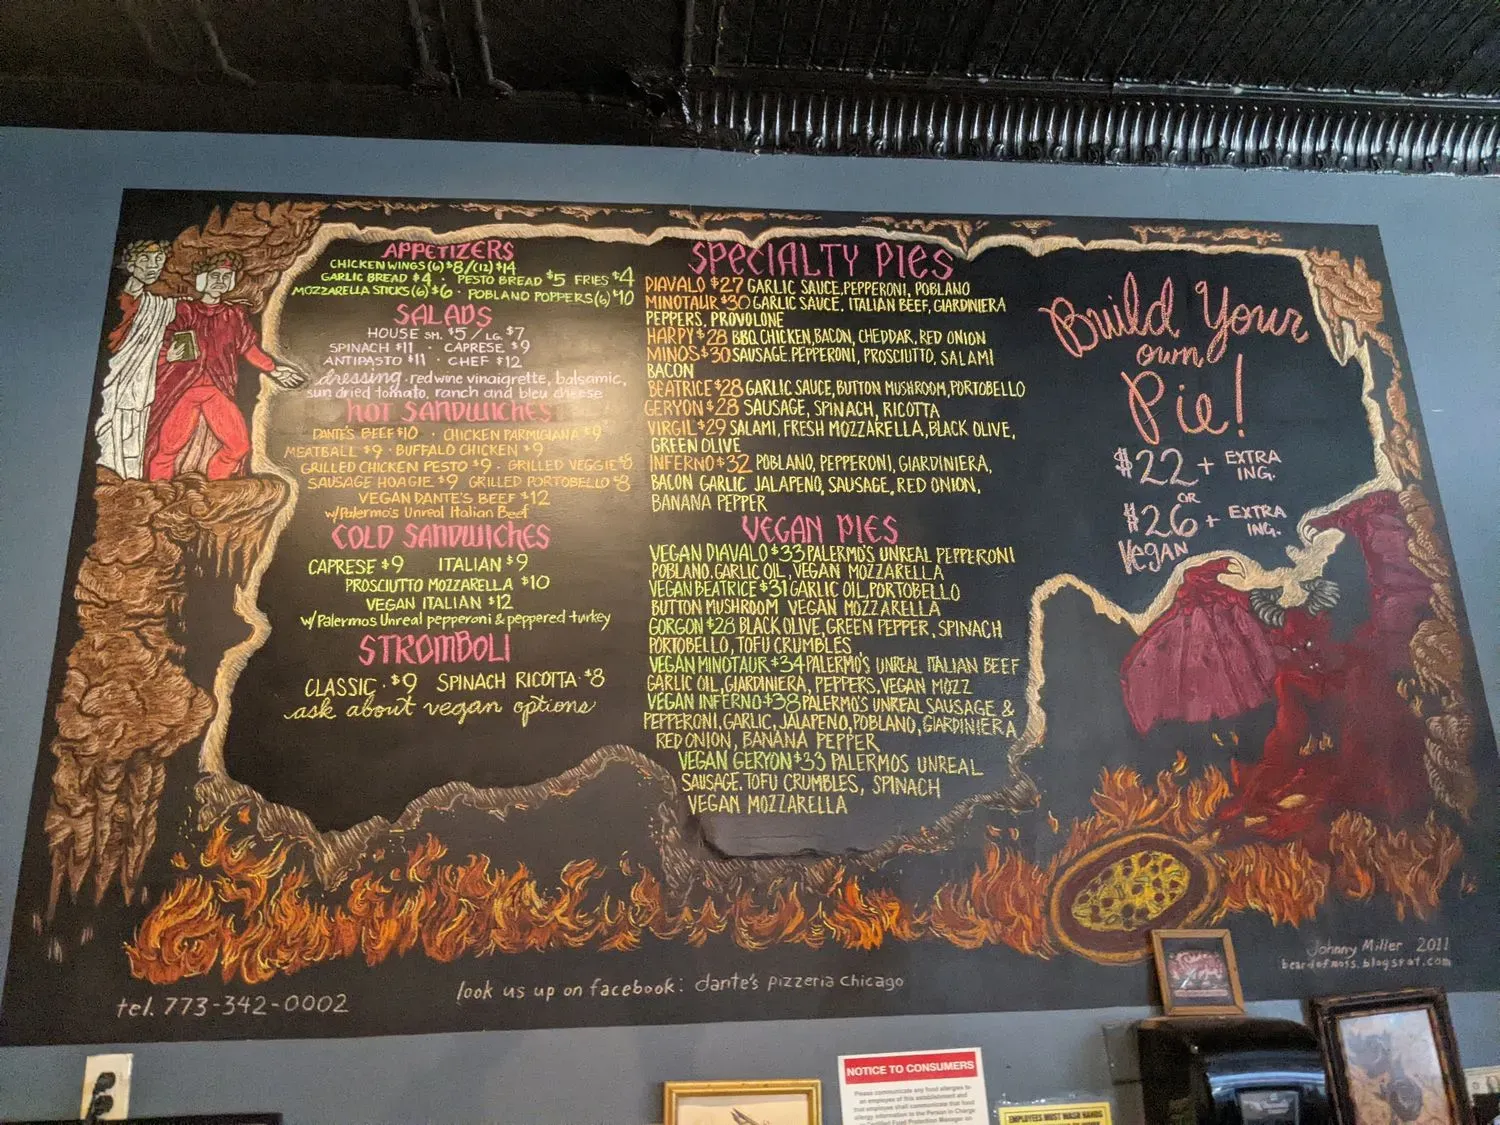 APPETIZERS
CHICKEN WINGS (6) $8/(12) $14
GARLIC BREAD $4 · PESTO BREAD $5 FRIES $4
MOZZARELLA STICKS (6) $6 · POBLANO POPPERS (6) $10
SALADS
HOUSE SM. $5 / LG. $7
SPINACH $11 · CAPRESE $9
ANTIPASTO $11 · CHEF $12
dressing · red wine vinaigrette, balsamic,
sun dried tomato, ranch and bleu cheese
HOT SANDWICHES
DANTE'S BEEF $10 · CHICKEN PARMIGIANA $9
MEATBALL $9 · BUFFALO CHICKEN $9
GRILLED CHICKEN PESTO $9 · GRILLED VEGGIE $8
SAUSAGE HOAGIE $9 GRILLED PORTOBELLO $8
VEGAN DANTE'S BEEF $12
w/Palermo's Unreal Italian Beef
COLD SANDWICHES
CAPRESE $9 ITALIAN $9
PROSCIUTTO MOZZARELLA $10
VEGAN ITALIAN $12
w/Palermos Unreal pepperoni & peppered turkey
STROMBOLI
CLASSIC · $9 SPINACH RICOTTA · $8
ask about vegan options
SPECIALTY PIES
DIAVALO $27 GARLIC SAUCE, PEPPERONI, POBLANO
MINOTAUR $30 GARLIC SAUCE, ITALIAN BEEF, GIARDINIERA
PEPPERS, PROVOLONE
HARPY $28 BBQ CHICKEN, BACON, CHEDDAR, RED ONION
MINOS $30 SAUSAGE, PEPPERONI, PROSCIUTTO, SALAMI
BACON
BEATRICE $28 GARLIC SAUCE, BUTTON MUSHROOM, PORTOBELLO
GERYON $28 SAUSAGE, SPINACH, RICOTTA
VIRGIL $29 SALAMI, FRESH MOZZARELLA, BLACK OLIVE,
GREEN OLIVE
INFERNO $32 POBLANO, PEPPERONI, GIARDINIERA,
BACON GARLIC JALAPENO, SAUSAGE, RED ONION,
BANANA PEPPER
VEGAN PIES
VEGAN DIAVALO $33 PALERMO'S UNREAL PEPPERONI
POBLANO, GARLIC OIL, VEGAN MOZZARELLA
VEGAN BEATRICE $31 GARLIC OIL, PORTOBELLO
BUTTON MUSHROOM VEGAN MOZZARELLA
GORGON $28 BLACK OLIVE, GREEN PEPPER, SPINACH
PORTOBELLO, TOFU CRUMBLES
VEGAN MINOTAUR $34 PALERMO'S UNREAL ITALIAN BEEF
GARLIC OIL, GIARDINIERA, PEPPERS, VEGAN MOZZ
VEGAN INFERNO $38 PALERMO'S UNREAL SAUSAGE &
PEPPERONI, GARLIC, JALAPENO, POBLANO, GIARDINIERA
RED ONION, BANANA PEPPER
VEGAN GERYON $33 PALERMOS UNREAL
SAUSAGE, TOFU CRUMBLES, SPINACH
VEGAN MOZZARELLA
Build Your
own
Pie!
$22 + EXTRA ING.
OR
$26 + EXTRA ING.
Vegan
Johnny Miller 2011
beardofmoss.blogspot.com
tel. 773-342-0002
look us up on facebook: dante's pizzeria chicago
NOTICE TO CONSUMERS
Please communicate any food allergies to
an employee of this establishment and
that employee shall communicate that food
allergy information to the Person in Charge
EMPLOYEES MUST WASH HANDS